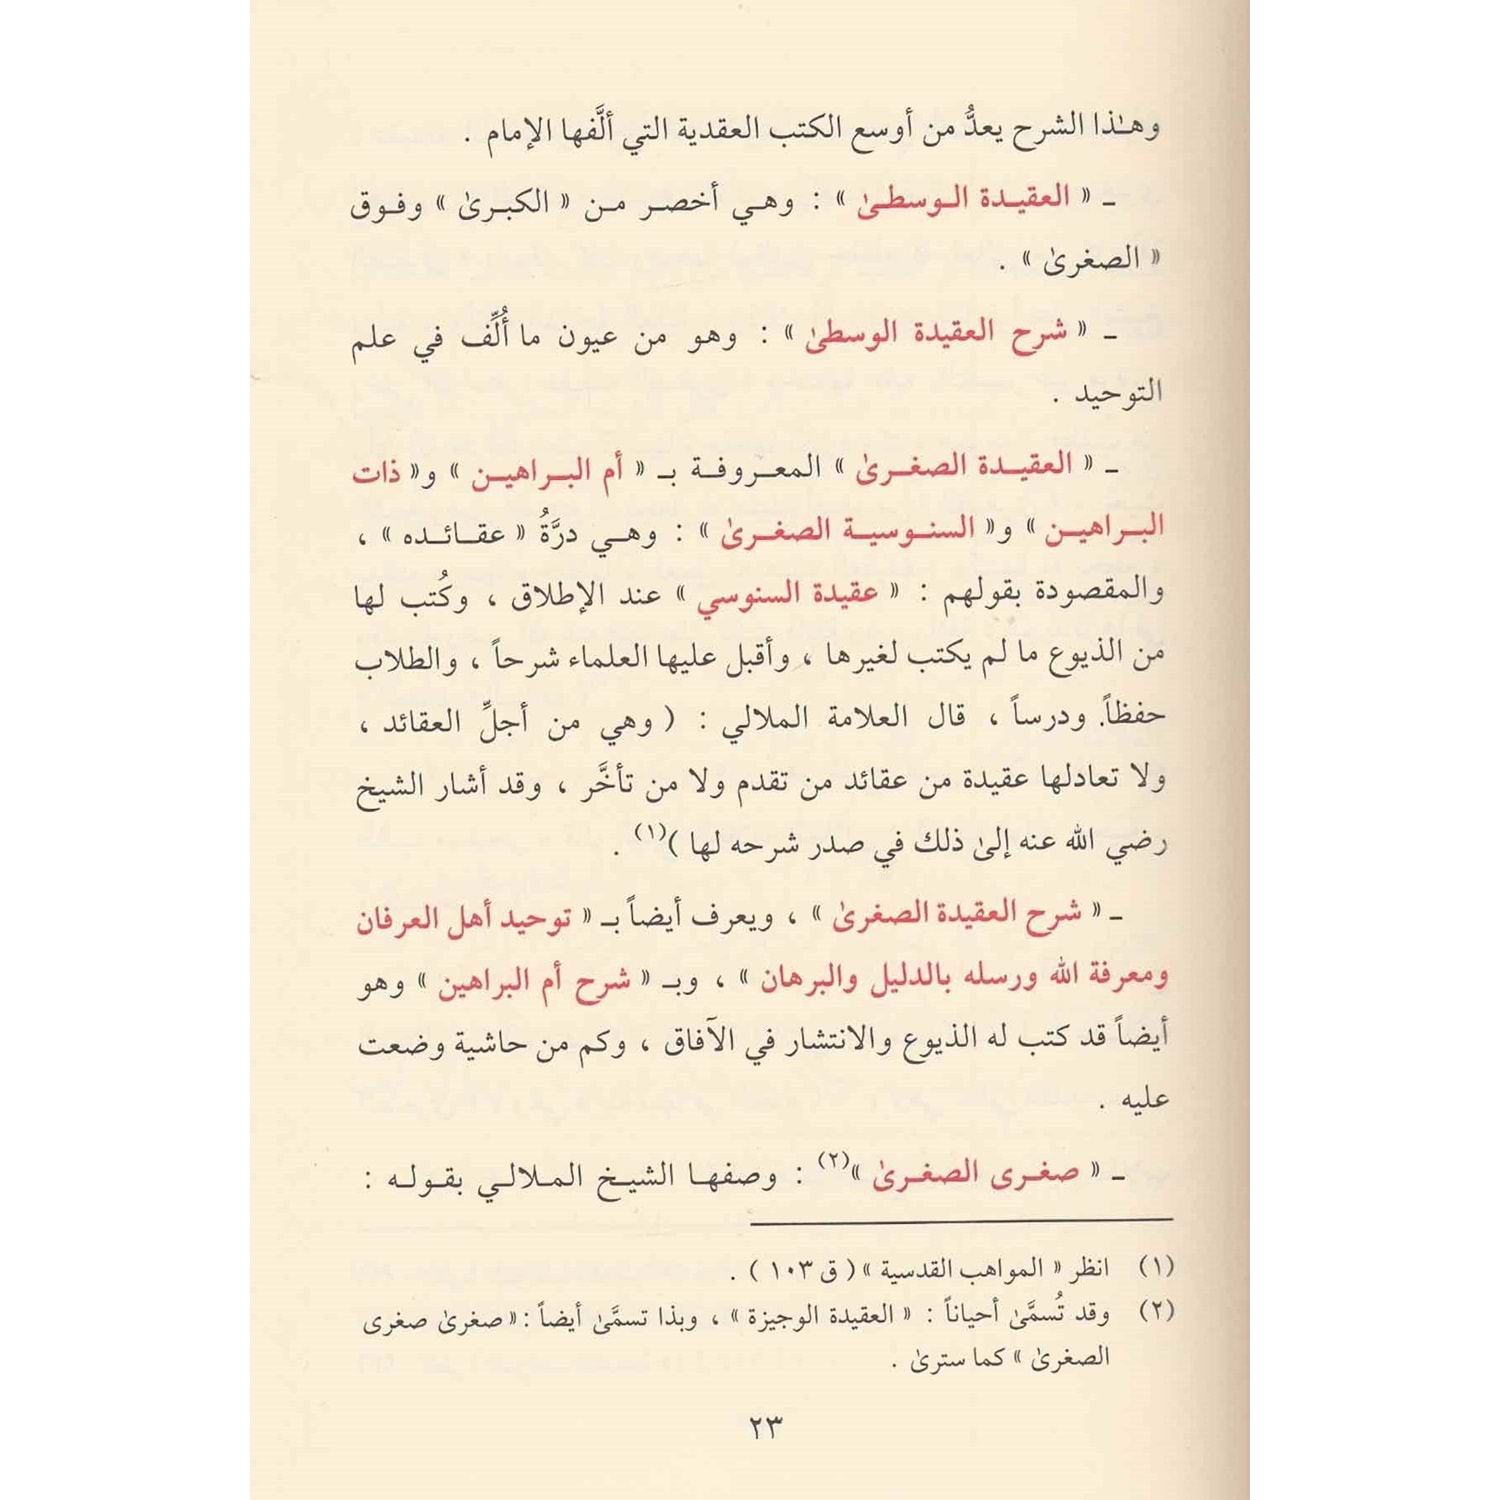 وهـٰذا الشرح يعدُّ من أوسع الكتب العقدية التي ألَّفها الإمام .
ـ « العقيـدة الـوسطـىٰ » : وهـي أخصـر مـن « الكبـرىٰ » وفـوق
« الصغرىٰ » .
ـ « شرح العقيدة الوسطىٰ » : وهو من عيون ما أُلِّف في علم
التوحيد .
ـ « العقيـدة الصغـرىٰ » المعـروفـة بـ « أم البـراهيـن » و« ذات
البـراهيـن » و« السنـوسيـة الصغـرىٰ » : وهـي درَّةُ « عقـائـده » ،
والمقصودة بقولهم : « عقيدة السنوسي » عند الإطلاق ، وكُتب لها
من الذيوع ما لم يكتب لغيرها ، وأقبل عليها العلماء شرحاً ، والطلاب
حفظاً ودرساً ، قال العلامة الملالي : ( وهي من أجلِّ العقائد ،
ولا تعادلها عقيدة من عقائد من تقدم ولا من تأخَّر ، وقد أشار الشيخ
رضي الله عنه إلىٰ ذلك في صدر شرحه لها )(١) .
ـ « شرح العقيدة الصغرىٰ » ، ويعرف أيضاً بـ « توحيد أهل العرفان
ومعرفة الله ورسله بالدليل والبرهان » ، وبـ « شرح أم البراهين » وهو
أيضاً قد كتب له الذيوع والانتشار في الآفاق ، وكم من حاشية وضعت
عليه .
ـ « صغـرى الصغـرىٰ »(٢) : وصفهـا الشيـخ المـلالـي بقـولـه :
(١) انظر « المواهب القدسية » ( ق ١٠٣ ) .
(٢) وقد تُسمَّىٰ أحياناً : « العقيدة الوجيزة » ، وبذا تسمَّىٰ أيضاً : « صغرىٰ صغرى
الصغرىٰ » كما سترىٰ .
٢٣